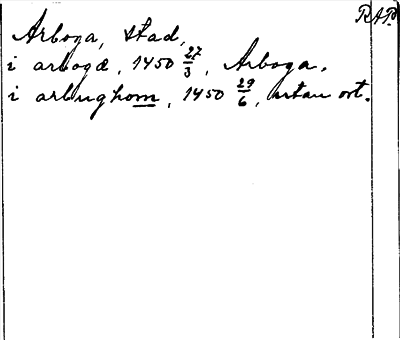 RAP.
Arboga, stad,
i arbogæ, 1450 27/3, Arboga.
i arbughom, 1450 29/6, utan ort.